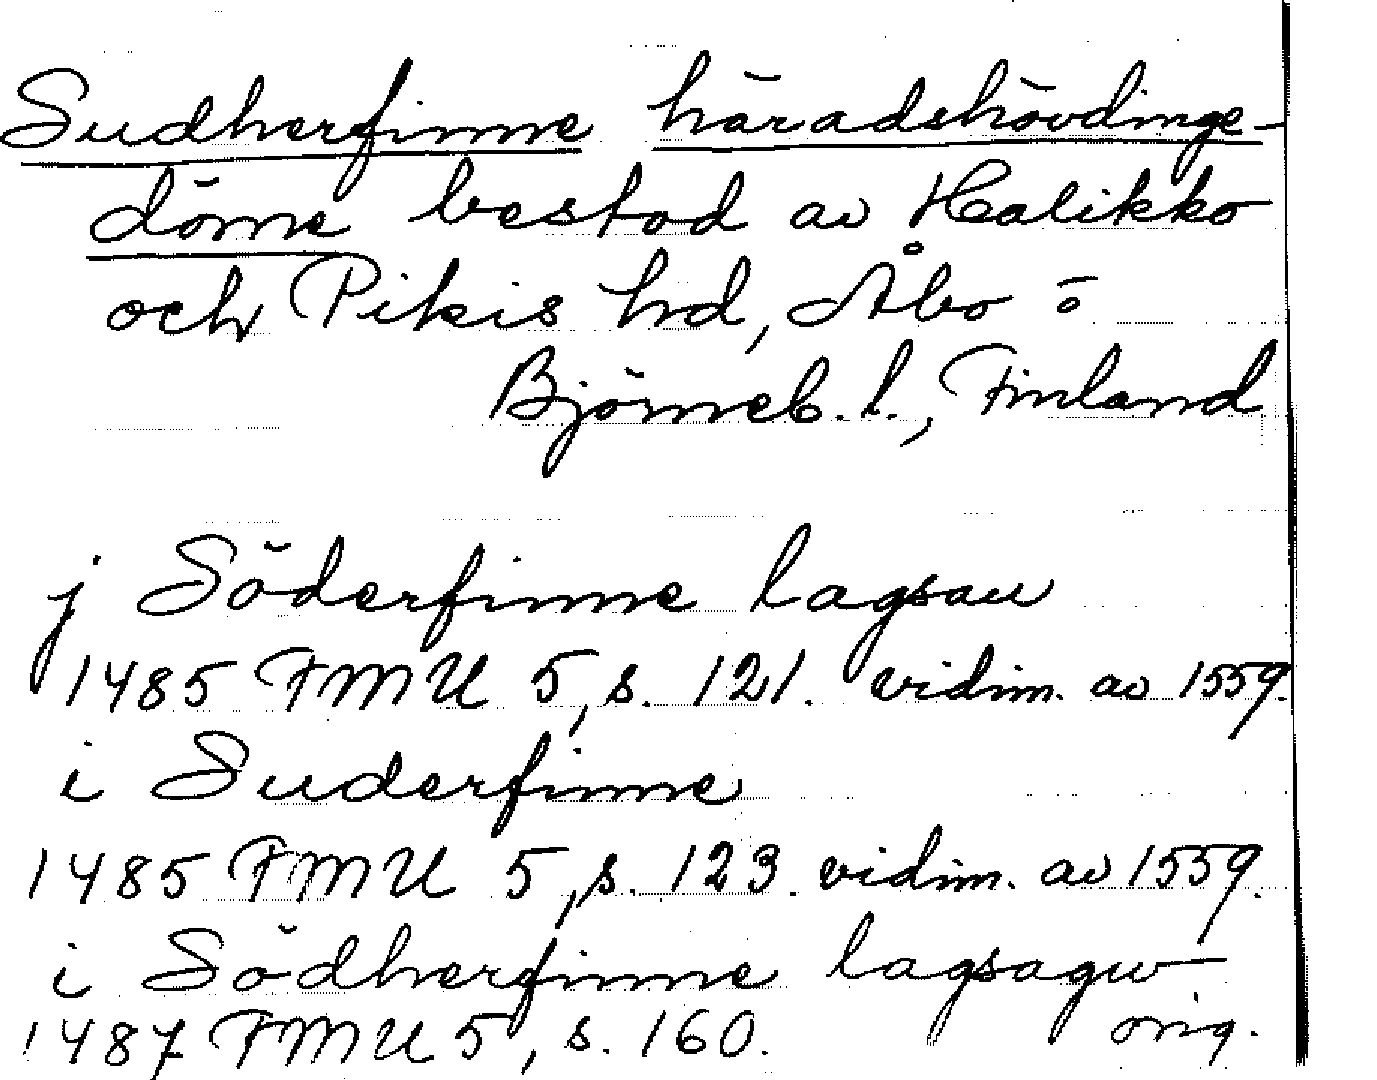 Sudherfinne häradshövdinge-
döme bestod av Halikko
och Pikis hd, Åbo o
Björneb. l., Finland
j Söderfinne lagsau
1485 FMU 5, s. 121. vidim. av 1559.
i Suderfinne
1485 FMU 5, s. 123. vidim. av 1559.
i Södherfinne lagsagw
1487 FMU 5, s. 160. orig.